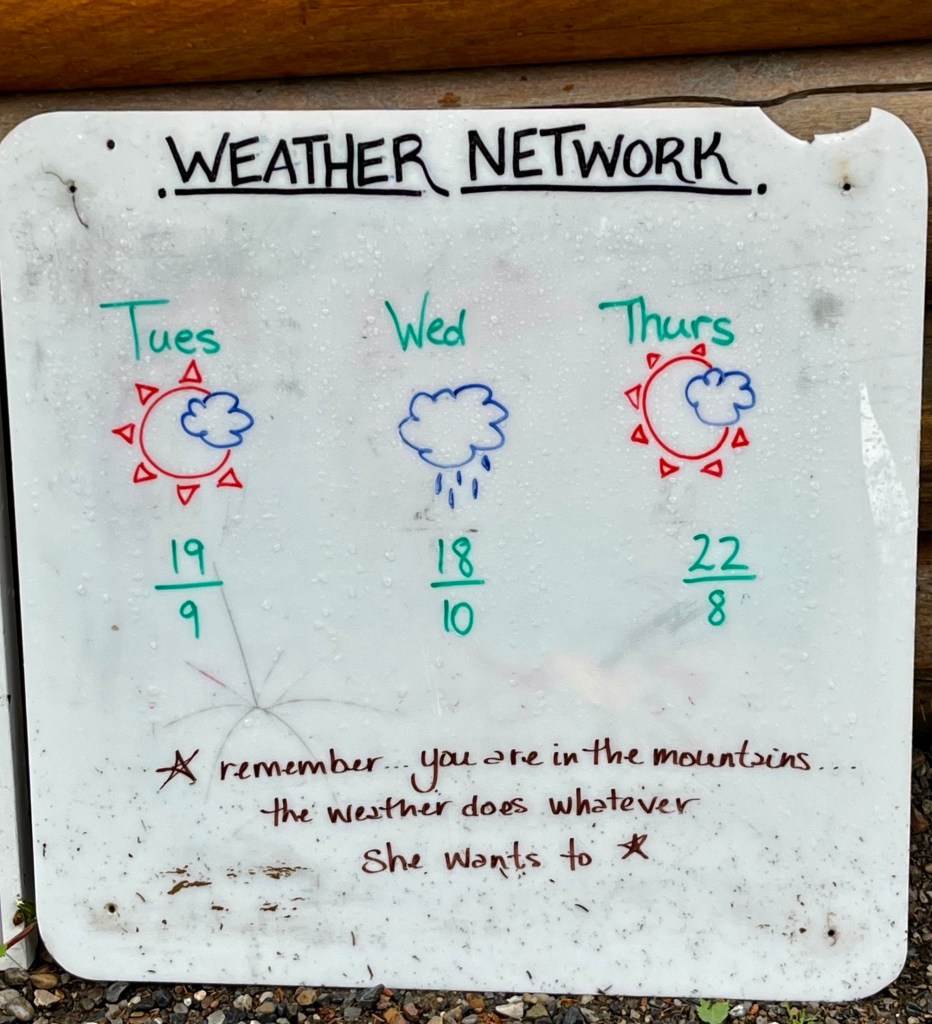 WEATHER NETWORK
Tues Wed Thurs
19 18 22
9 10 8
☆ remember... you are in the mountains....
the weather does whatever
she wants to ☆